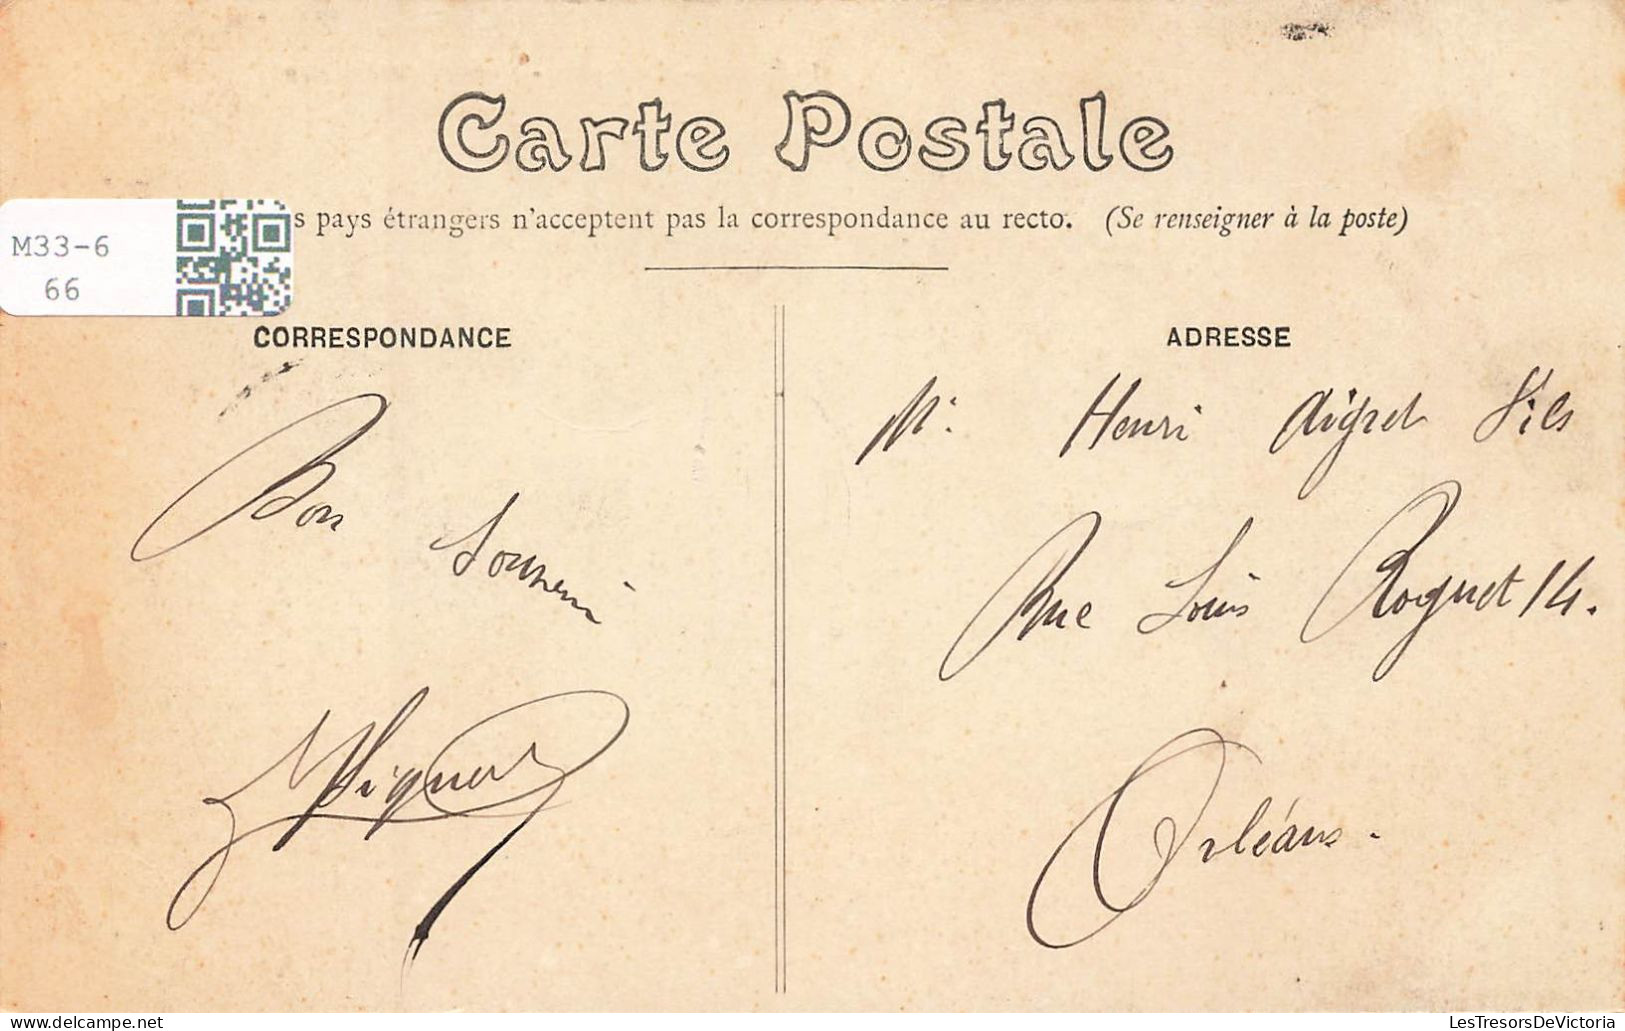 Carte Postale
s pays étrangers n'acceptent pas la correspondance au recto. (Se renseigner à la poste)
M33-6
66
CORRESPONDANCE
Bon
Souvenir
ADRESSE
Mr. Henri Aigret Fils
Rue Louis Roguet 14.
Orléans.
LesTresorsDeVictoria